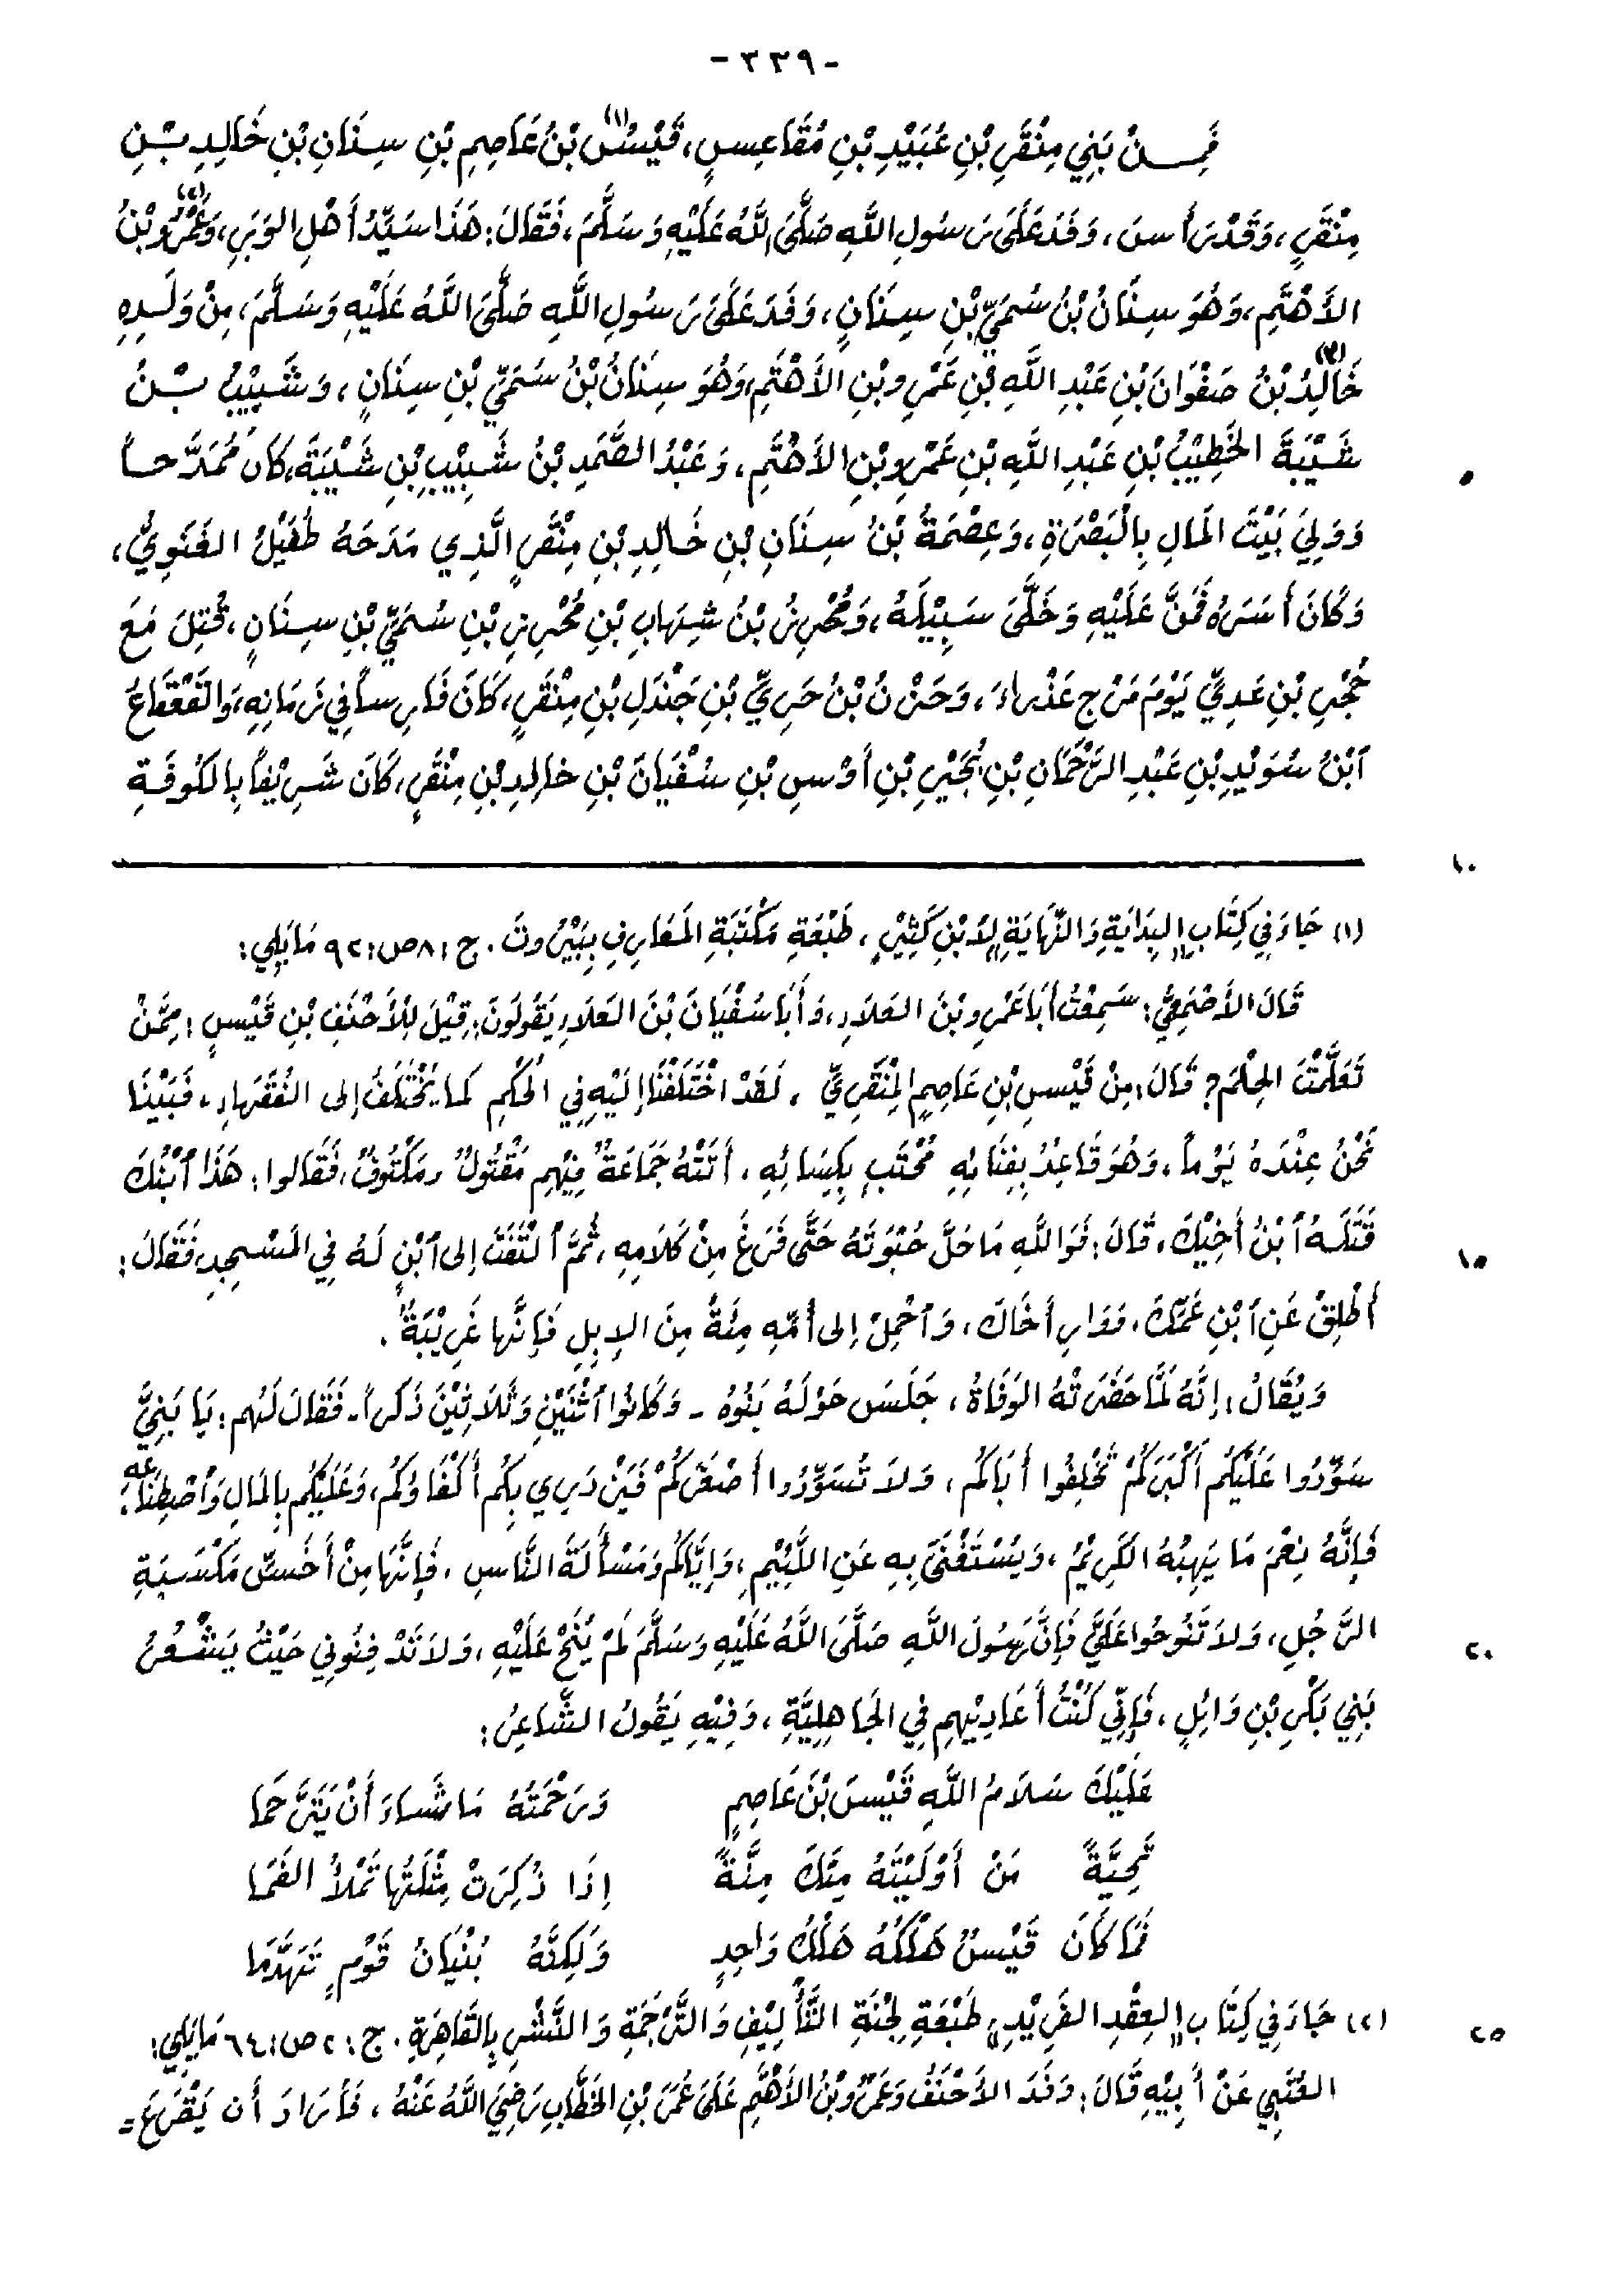 - ٣٣٩ -
فَمِنْ بَنِي مِنْقَرِ بْنِ عُبَيْدِ بْنِ مُقَاعِسٍ، قَيْسُ(١) بْنُ عَاصِمِ بْنِ سِنَانِ بْنِ خَالِدِ بْنِ
مِنْقَرٍ، وَقَدْ رَأَسَ، وَفَدَ عَلَى رَسُولِ اللَّهِ صَلَّى اللَّهُ عَلَيْهِ وَسَلَّمَ، فَقَالَ: هَذَا سَيِّدُ أَهْلِ الوَبَرِ، وَعَمْرُو(٢) بْنُ
الأَهْتَمِ، وَهُوَ سِنَانُ بْنُ سُمَيِّ بْنِ سِنَانٍ، وَفَدَ عَلَى رَسُولِ اللَّهِ صَلَّى اللَّهُ عَلَيْهِ وَسَلَّمَ، مِنْ وَلَدِهِ
خَالِدُ(٣) بْنُ صَفْوَانَ بْنِ عَبْدِ اللَّهِ بْنِ عَمْرِو بْنِ الأَهْتَمِ، وَهُوَ سِنَانُ بْنُ سُمَيِّ بْنِ سِنَانٍ، وَشَبِيْبُ بْنُ
شَيْبَةَ الخَطِيْبُ بْنِ عَبْدِ اللَّهِ بْنِ عَمْرِو بْنِ الأَهْتَمِ، وَعَبْدُ الصَّمَدِ بْنُ شَبِيْبِ بْنِ شَيْبَةَ، كَانَ مُمَدَّحاً
٥
وَوَلِيَ بَيْتَ المَالِ بِالْبَصْرَةِ، وَعِصْمَةُ بْنُ سِنَانِ بْنِ خَالِدِ بْنِ مِنْقَرٍ الَّذِي مَدَحَهُ طُفَيْلٌ الغَنَوِيُّ،
وَكَانَ أَسَرَهُ فَمَنَّ عَلَيْهِ وَخَلَّى سَبِيْلَهُ، وَمُحْرِزُ بْنُ شِهَابِ بْنِ مُحْرِزِ بْنِ سُمَيِّ بْنِ سِنَانٍ، قُتِلَ مَعَ
حُجْرِ بْنِ عَدِيٍّ يَوْمَ مَرْجِ عَذْرَاءَ، وَحَزْنُ بْنُ حَرِيِّ بْنِ جَنْدَلِ بْنِ مِنْقَرٍ، كَانَ فَارِساً فِي زَمَانِهِ، وَالقَعْقَاعُ
ٱبْنُ سُوَيْدِ بْنِ عَبْدِ الرَّحْمَانِ بْنِ بُجَيْرِ بْنِ أَوْسِ بْنِ سُفْيَانَ بْنِ خَالِدِ بْنِ مِنْقَرٍ، كَانَ شَرِيْفاً بِالكُوفَةِ
١٠
(١) جَاءَ فِي كِتَابِ "البِدَايَةِ وَالنِّهَايَةِ" لِابْنِ كَثِيْرٍ، طَبْعَةِ مَكْتَبَةِ المَعَارِفِ بِبَيْرُوتَ. ج: ٨ ص: ٩٢ مَا يَلِي:
قَالَ الأَصْمَعِيُّ: سَمِعْتُ أَبَا عَمْرِو بْنَ العَلَاءِ، وَأَبَا سُفْيَانَ بْنَ العَلَاءِ يَقُولَونَ: قِيْلَ لِلأَحْنَفِ بْنِ قَيْسٍ: مِمَّنْ
تَعَلَّمْتَ الحِلْمَ؟ قَالَ: مِنْ قَيْسِ بْنِ عَاصِمٍ المِنْقَرِيِّ، لَقَدْ اخْتَلَفْنَا إِلَيْهِ فِي الحُكْمِ كما يُخْتَلَفُ إلى الفُقَهَاءِ، فَبَيْنَا
نَحْنُ عِنْدَهُ يَوْماً، وَهُوَ قَاعِدٌ بِفِنَائِهِ مُحْتَبٍ بِكِسَائِهِ، أَتَتْهُ جَمَاعَةٌ فِيْهِم مَقْتُولٌ وَمَكْتُوفٌ، فَقَالوا: هَذَا ٱبْنُكَ
قَتَلَهُ ٱبْنُ أَخِيْكَ، قَالَ: فَوَاللَّهِ مَا حَلَّ حُبْوَتَهُ حَتَّى فَرَغَ مِنْ كَلَامِهِ، ثُمَّ ٱلْتَفَتَ إلى ٱبْنٍ لَهُ فِي المَسْجِدِ، فَقَالَ:
١٥
أَطْلِقْ عَنِ ٱبْنِ عَمِّكَ، وَوَارِ أَخَاكَ، وَٱحْمِلْ إلى أُمِّهِ مِئَةً مِنَ الإِبِلِ فَإِنَّها غَرِيْبَةٌ.
وَيُقَالُ: إِنَّهُ لَمَّا حَضَرَتْهُ الوَفَاةُ، جَلَسَ حَوْلَهُ بَنُوهُ - وَكَانُوا ٱثْنَيْنِ وَثَلَاثِيْنَ ذَكَراً - فَقَالَ لَهُم: يَا بَنِيَّ
سَوِّدُوا عَلَيْكُم أَكْبَرَكُمْ تَخْلِفُوا أَبَاكُم، وَلاَ تُسَوِّدُوا أَصْغَرَكُمْ فَيَزْدَرِي بِكُم أَكْفَاؤُكُم، وَعَلَيْكُم بِالمَالِ وَٱصْطِنَاعِهِ،
فَإِنَّهُ نِعْمَ مَا يَهِبُهُ الكَرِيْمُ، وَيُسْتَغْنَى بِهِ عَنِ اللَّئِيْمِ، وَإِيَّاكُم وَمَسْأَلَةَ النَّاسِ، فَإِنَّهَا مِنْ أَخَسِّ مَكْسَبَةِ
الرَّجُلِ، وَلاَ تَنُوحُوا عَلَيَّ فَإِنَّ رَسُولَ اللَّهِ صَلَّى اللَّهُ عَلَيْهِ وَسَلَّمَ لَمْ يُنَحْ عَلَيْهِ، وَلاَ تَدْفِنُونِي حَيْثُ يَشْعُرُ
٢٠
بَنِي بَكْرِ بْنِ وَائِلٍ، فَإِنِّي كُنْتُ أُعَادِيْهِم فِي الجَاهِلِيَّةِ، وَفِيْهِ يَقُولُ الشَّاعِرُ:
عَلَيْكَ سَلاَمُ اللَّهِ قَيْسَ بْنَ عَاصِمٍ وَرَحْمَتُهُ مَا شَاءَ أَنْ يَتَرَّحَمَا
تَحِيَّةَ مَنْ أَوْلَيْتَهُ مِنْكَ مِنَّةً إِذَا ذُكِرَتْ مِثْلَتُها تَمْلأُ الفَمَا
فَمَا كَانَ قَيْسٌ هَلْكُهُ هَلْكُ وَاحِدٍ وَلَكِنَّهُ بُنْيَانُ قَوْمٍ تَهَدَّمَا
(٢) جَاءَ فِي كِتَابِ "العِقْدِ الفَرِيْدِ" طَبْعَةِ لِجْنَةِ التَّأْلِيْفِ وَالتَّرْجَمَةِ وَالنَّشْرِ بِالقَاهِرَةِ. ج: ٢ ص: ٦٤ مَا يَلِي:
٢٥
العُتْبِي عَنْ أَبِيْهِ قَالَ: وَفَدَ الأَحْنَفُ وَعَمْرُو بْنُ الأَهْتَمِ عَلَى عُمَرَ بْنِ الخَطَّابِ رَضِيَ اللَّهُ عَنْهُ، فَأَرَادَ أَن يَقْرَعَ =